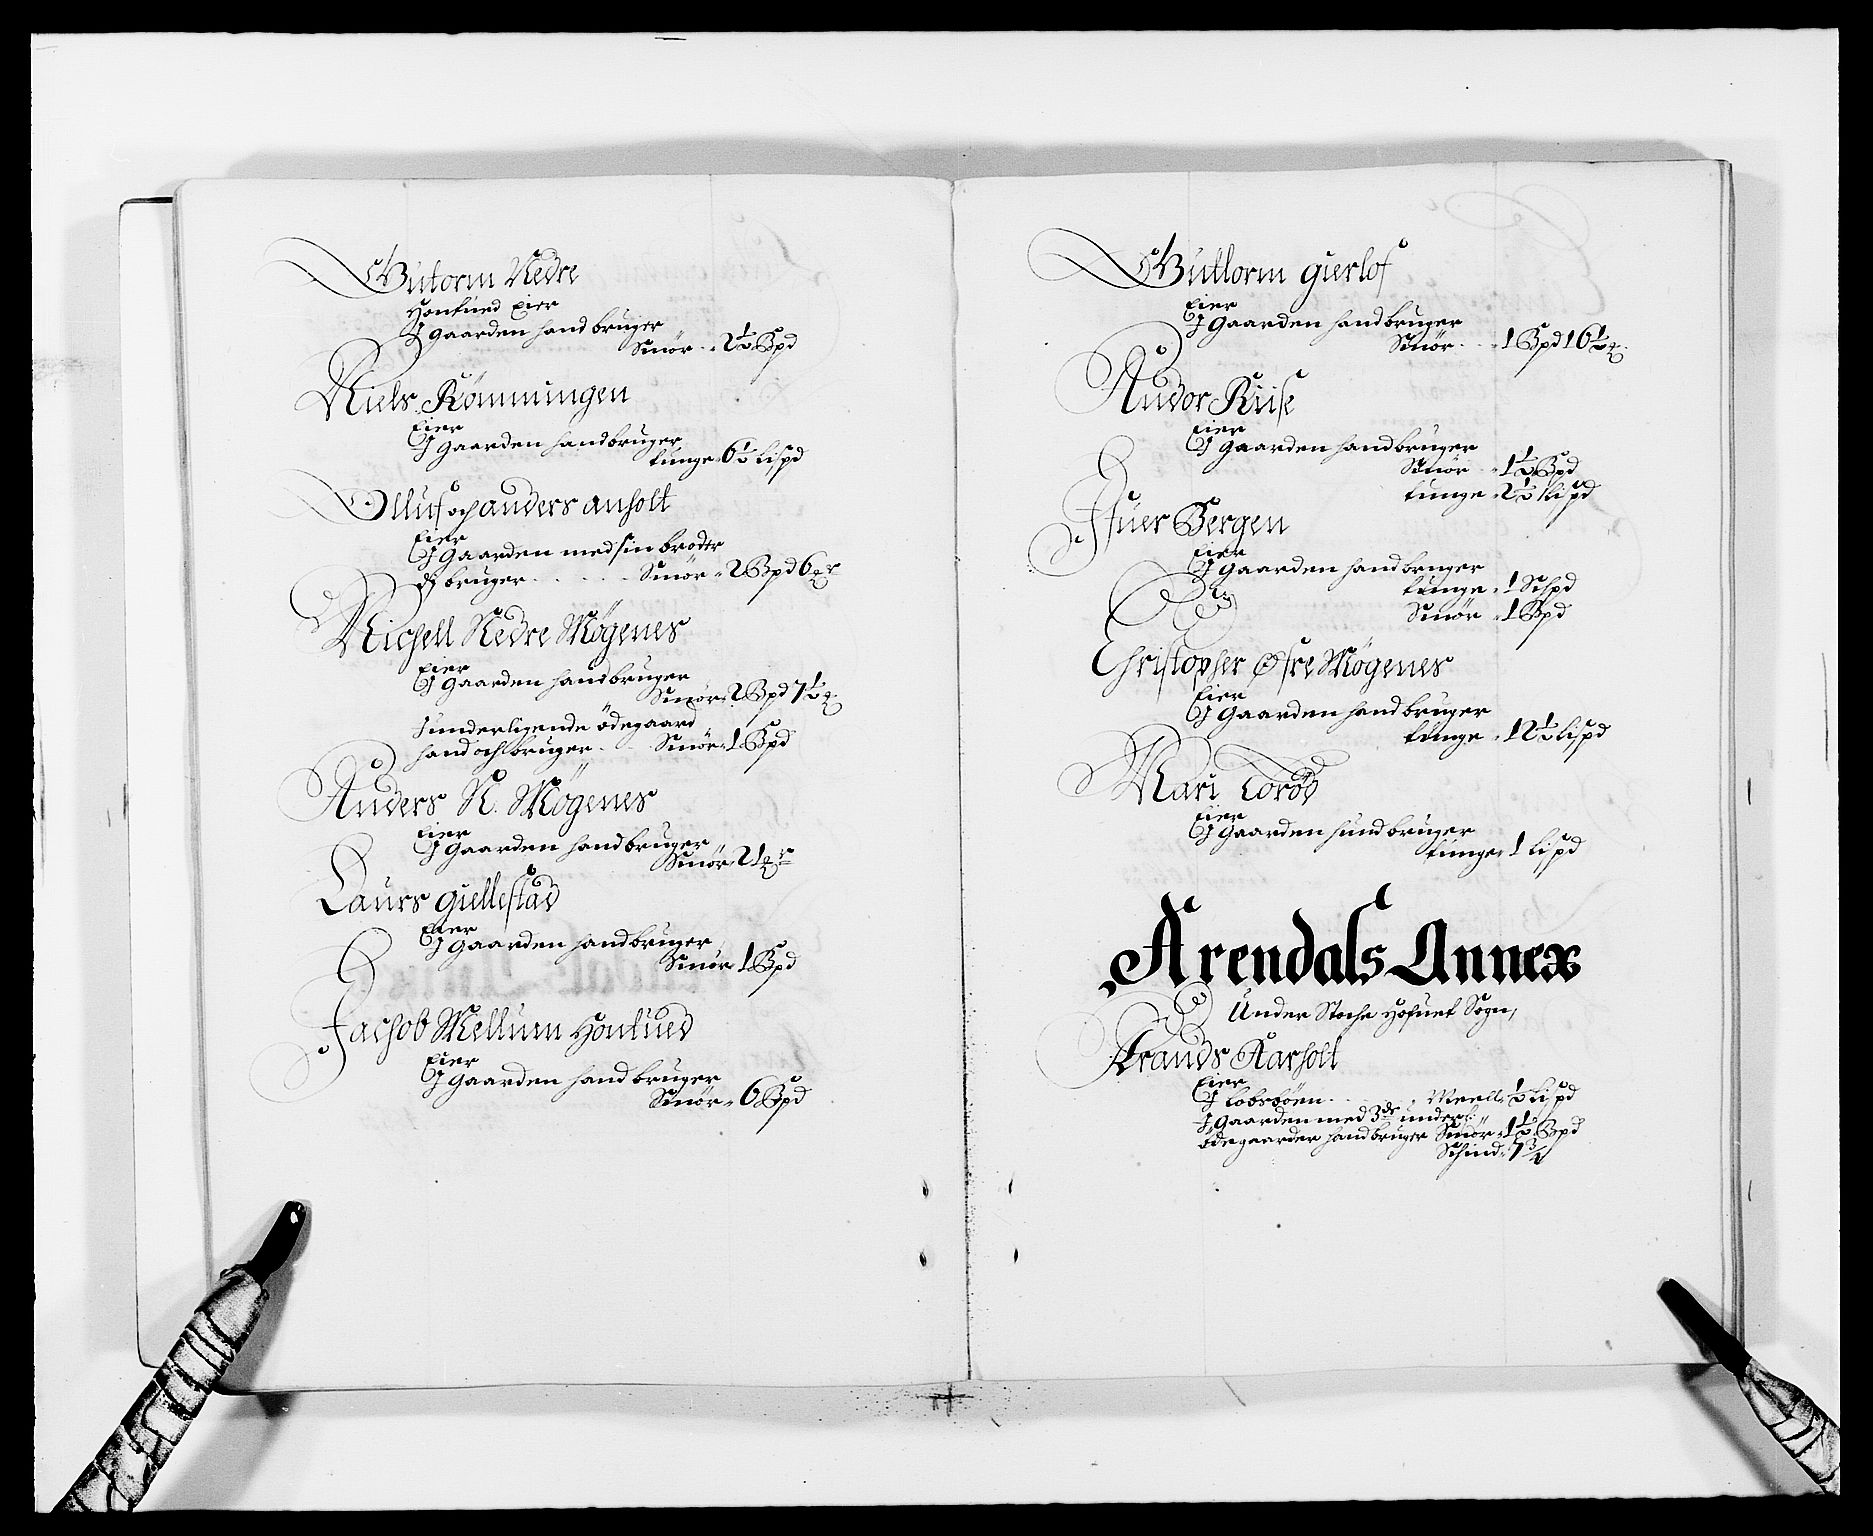 Gutorm Nedre
Hontued Eier
J gaarden hand bruger
Smör 2½ Bpd
Niels Römmingen
Eier
J gaarden hand bruger
tunge 6½ Lispd
Olluf och anders anholt
Eier
J gaarden med sin broder
dj bruger . . . . . Smör 2 Bpd 6
Michell Nedre Mögenes
Eier
J gaarden hand bruger
Smör 2 Bpd 7½
underligende ödegaard
hand och bruger . . Smör 1 Bpd
Anders N. Mögenes
Eier
J gaarden hand bruger
Smör 21
Laurs giellestad
Eier
J gaarden hand bruger
Smör 1 Bpd
Jachob Mellum Hontued
Eier
J gaarden hand bruger
Smör 6 Bpd
Guttorm gierlöf
Eier
J gaarden hand bruger
Smör . . 1 Bpd 16½
Andor Riise
Eier
J gaarden hand bruger
Smör 1½ Bpd
tunge 2½ lispd
Ifuer Bergen
Eier
J gaarden hand bruger
tunge 1 Schpd
Smör 1 Bpd
Christopher Öfre Mögenes
Eier
J gaarden hand bruger
tunge 12½ lispd
Mari Toröd
Eier
J gaarden hund bruger
tunge 1 lispd
Arendals Annex
Under Stoche Hofuet Sogn,
Frands Karholt
Eier
J . . . . Meell ½ Lispd
J gaarden med 3de underl:
ödegaarder hand bruger Smör 1½ Bpd
Schind 7¾